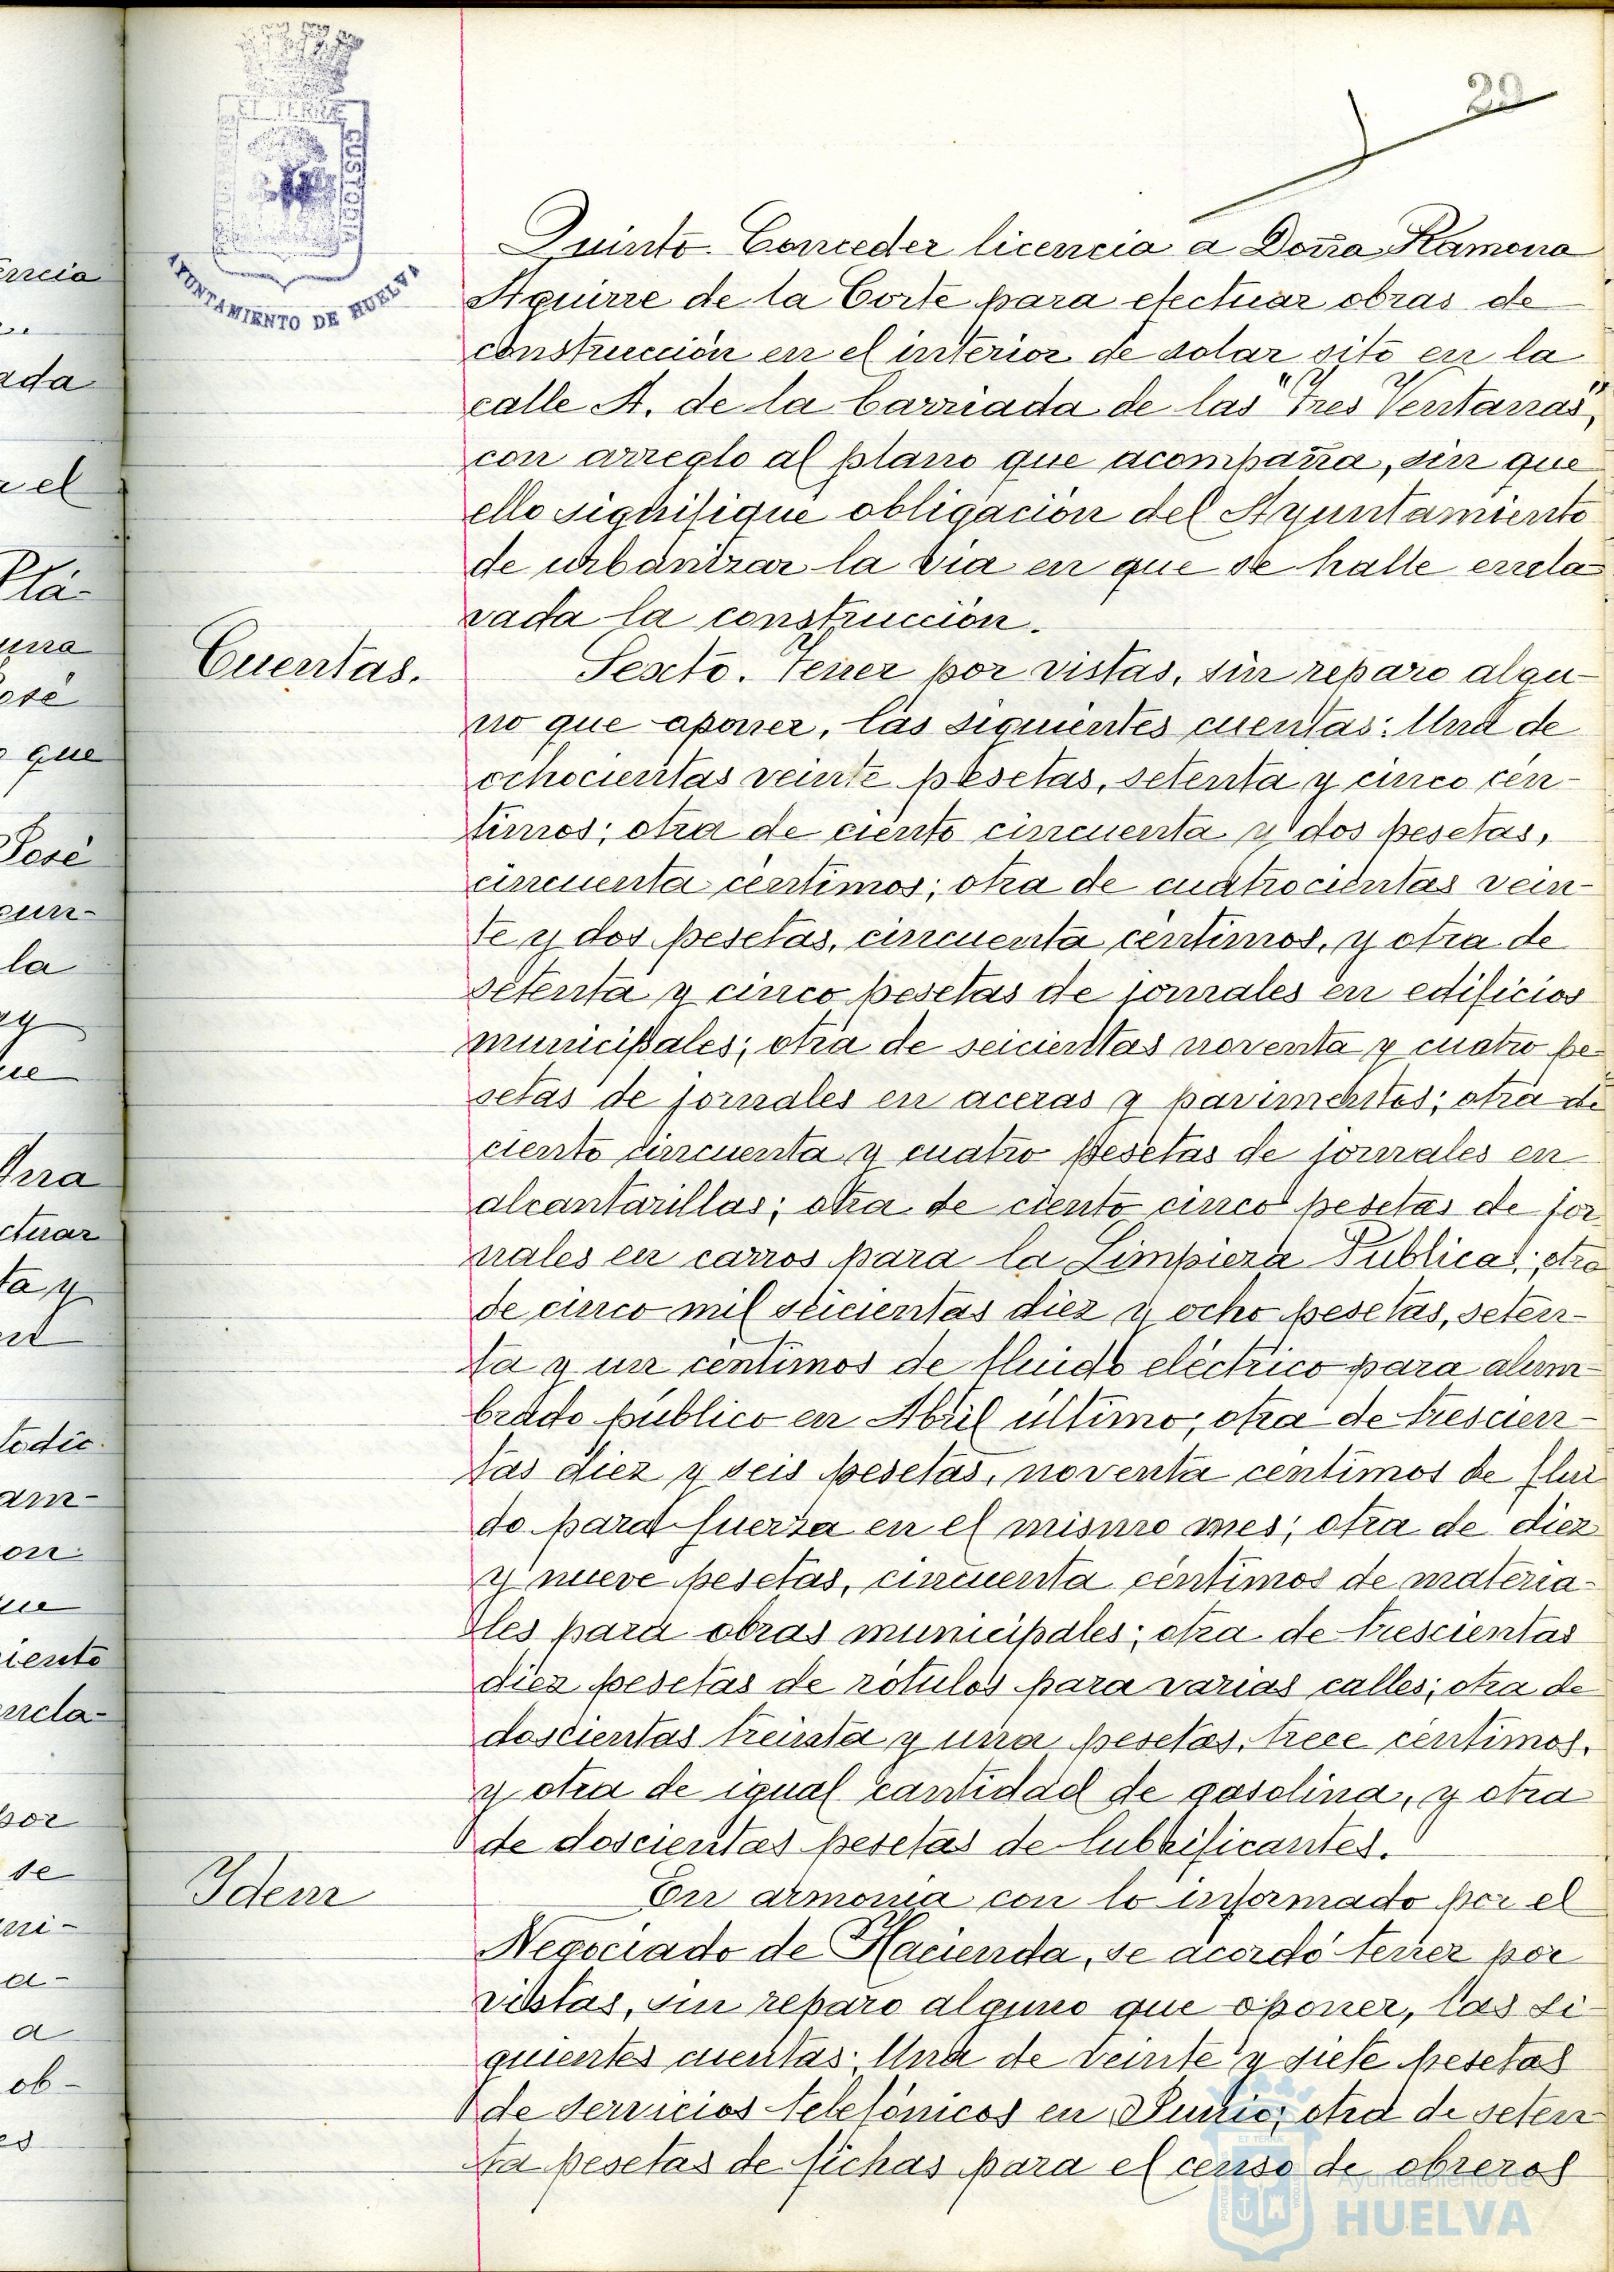 29
ET TERRÆ
CUSTODIA
AYUNTAMIENTO DE HUELVA
Quinto. Conceder licencia a Doña Ramona
Aguirre de la Corte para efectuar obras de
construcción en el interior de solar sito en la
calle A. de la barriada de las "Tres Ventanas",
con arreglo al plano que acompaña, sin que
ello signifique obligación del Ayuntamiento
de urbanizar la vía en que se halle encla-
vada la construcción.
Cuentas.
Sexto. Tener por vistas, sin reparo algu-
no que aponer, las siguientes cuentas: Una de
ochocientas veinte pesetas, setenta y cinco cén-
timos; otra de ciento cincuenta y dos pesetas,
cincuenta céntimos; otra de cuatrocientas vein-
te y dos pesetas, cincuenta céntimos, y otra de
setenta y cinco pesetas de jornales en edificios
municipales; otra de seicientas noventa y cuatro pe
setas de jornales en aceras y pavimentos; otra de
ciento cincuenta y cuatro pesetas de jornales en
alcantarillas; otra de ciento cinco pesetas de jor
nales en carros para la Limpieza Publica; otra
de cinco mil seicientas diez y ocho pesetas, seten-
ta y un centimos de fluido eléctrico para alum-
brado público en Abril último; otra de trescien-
tas diez y seis pesetas, noventa centimos de flui
do para fuerza en el mismo mes; otra de diez
y nueve pesetas, cincuenta céntimos de materia-
les para obras municipales; otra de trescientas
diez pesetas de rótulos para varias calles; otra de
doscientas treinta y una pesetas, trece céntimos,
y otra de igual cantidad de gasolina, y otra
de doscientas pesetas de lubrificantes.
Idem
En armonía con lo informado por el
Negociado de Hacienda, se acordó tener por
vistas, sin reparo alguno que oponer, las si-
guientes cuentas: Una de veinte y siete pesetas
de servicios telefónicos en Junio; otra de seten
ta pesetas de fichas para el censo de obreros
encia
ada
el
Pla-
una
José
que
José
cun-
la
ctuar
ta y
am-
on
iento
encla-
por
se
ni-
a-
a
ob-
es
Ayuntamiento de
HUELVA